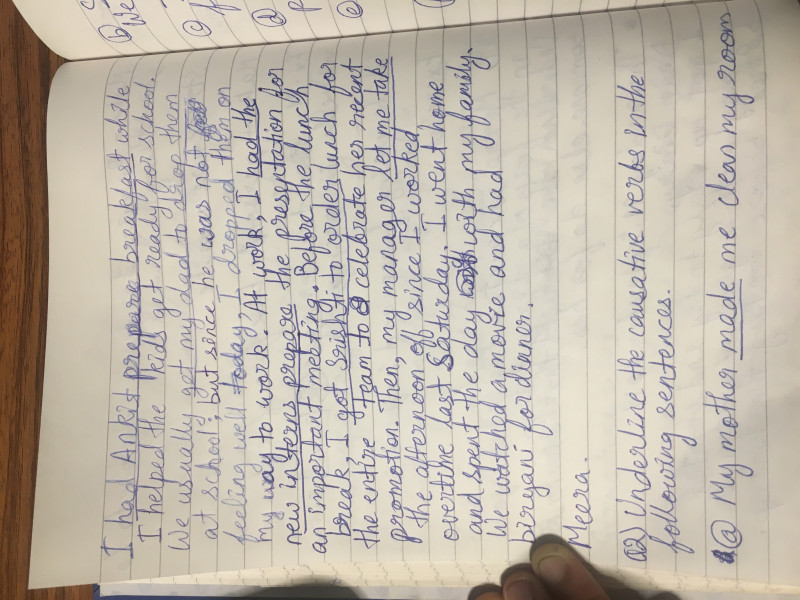 I had Ankit prepare breakfast while
I helped the kids get ready for school.
We usually get my dad to drop them
at school, but since he was not
feeling well today, I dropped them on
my way to work. At work, I had the
new interns prepare the presentation for
an important meeting. Before the lunch
break, I got Srishti to order lunch for
the entire team to celebrate her recent
promotion. Then, my manager let me take
the afternoon off since I worked
overtime last Saturday. I went home
and spent the day with my family.
We watched a movie and had
biryani for dinner.
Meera.
Q2) Underline the causative verbs in the
following sentences.
@ My mother made me clean my room